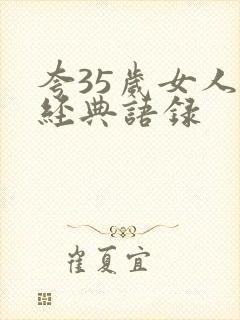 夸35歲女人
經典語録
崔夏宜